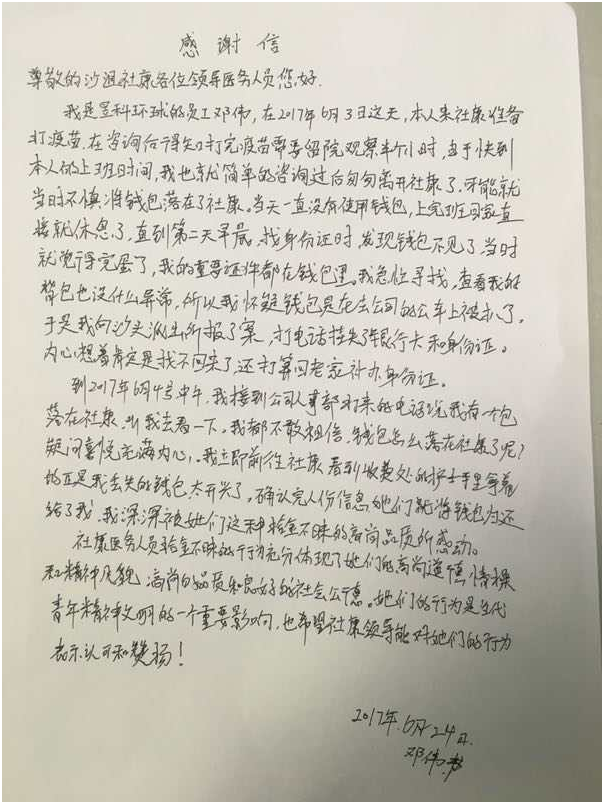 感谢信
尊敬的沙头社康各位领导医务人员您好.
我是昱科环球的员工邓伟，在2017年6月3日这天，本人来社康准备
打疫苗，在咨询后得知打完疫苗需要留院观察半个小时，由于快到
本人的上班日时间，我也就简单的咨询过后匆匆离开社康了，可能就
当时不慎将钱包落在了社康。当天一直没有使用钱包，上完班回家直
接就休息了，直到第二天早晨，找身份证时，发现钱包不见了，当时
就觉得完蛋了，我的重要证件都在钱包里。我急忙寻找，查看我的
背包也没什么异常，所以我怀疑钱包是在去公司的公车上被扒了，
于是我向沙头派出所报了案，打电话挂失了银行卡和身份证。
内心想着肯定是找不回来了，还打算回老家补办身份证。
到2017年6月4号中午，我接到公司人事部打来的电话说我有一个包
落在社康，叫我去看一下。我都不敢相信，钱包怎么落在社康了呢？
疑问喜悦充满内心，我立即前往社康看到收费处的护士手里拿着
的正是我丢失的钱包太开兴了，确认完人份信息她们就将钱包归还
给了我，我深深被她们这种拾金不昧的高尚品质所感动。
社康医务人员拾金不昧的行为充分体现了她们的高尚道德情操
和精神风貌，高尚的品质和良好的社会公德。她们的行为是当代
青年精神文明的一个重要影响，也希望社康领导能对她们的行为
表示认可和赞扬！
2017年6月24日.
邓伟书